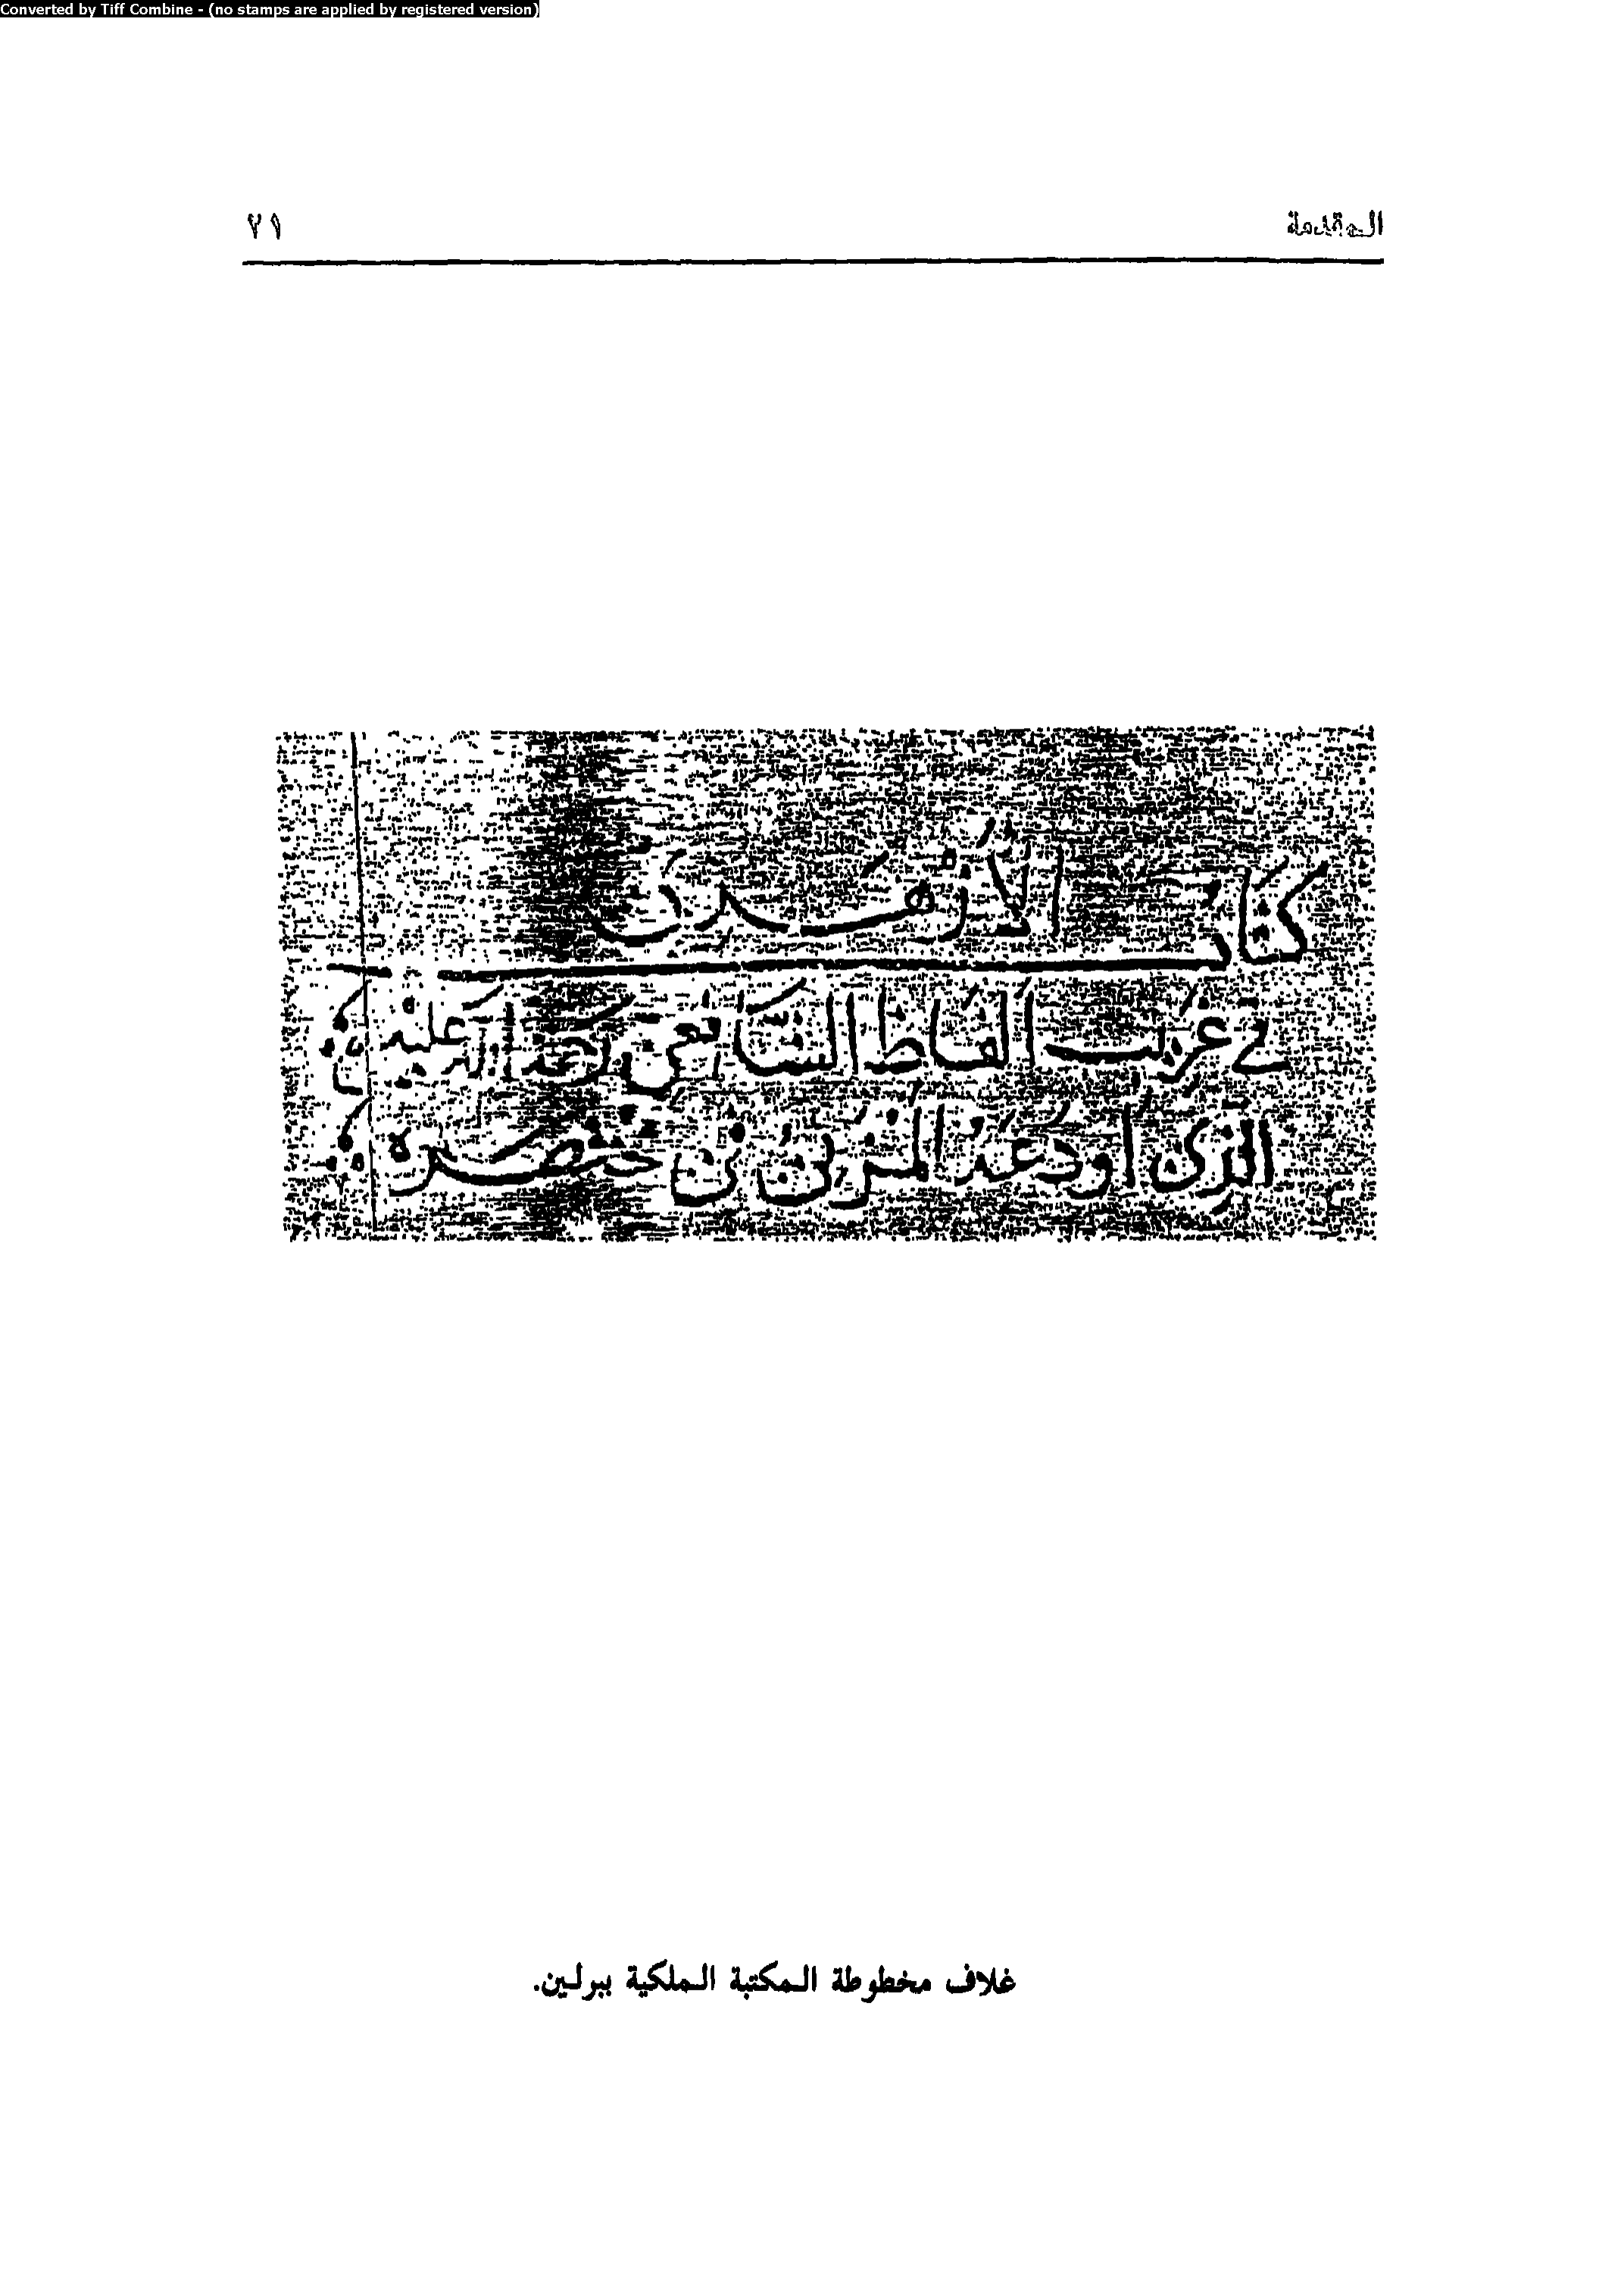 Converted by Tiff Combine - (no stamps are applied by registered version)
المقدمة ٢١
كتاب الأزهري
في غريب الفاظ الشافعي رحمة الله عليه
الذي اودعه المزني في مختصره
غلاف مخطوطة المكتبة الملكية ببرلين.